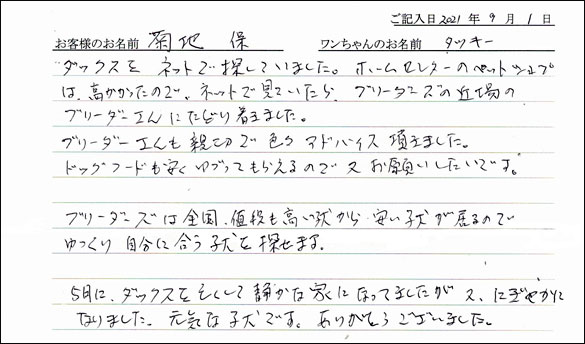 ご記入日2021年 9月 1日
お客様のお名前 菊地 保 ワンちゃんのお名前 タッキー
ダックスを ネットで探していました。ホームセンターのペットショップ
は、高かったので、ネットで見ていたら、ブリーダーズの近場の
ブリーダーさんにたどり着きました。
ブリーダーさんも親切で色々アドバイス頂きました。
ドッグフードも安くゆずってもらえるので又お願いしたいです。
ブリーダーズは全国、値段も高い犬から安い子犬が居るので
ゆっくり自分に合う子犬を探せます。
5月に、ダックスを亡くして静かな家になってましたが又、にぎやかに
なりました。元気な子犬です。ありがとうございました。